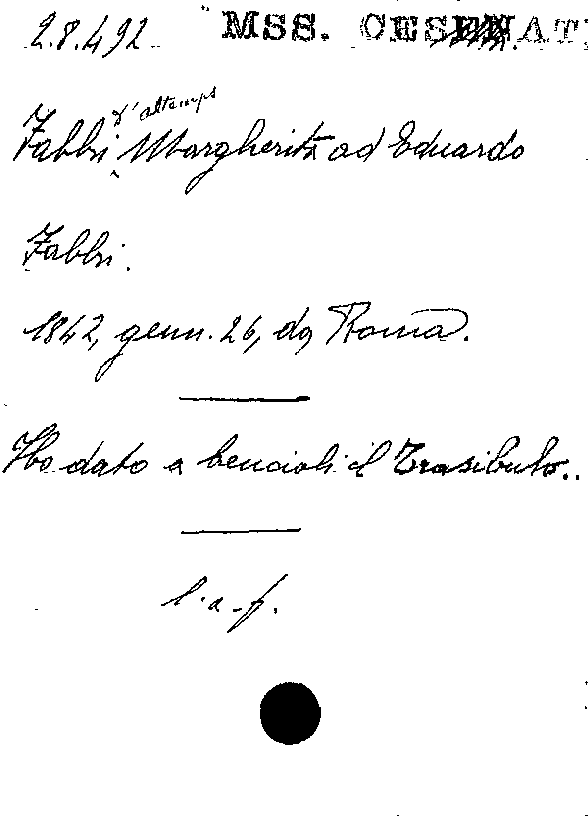 2.8.492 MSS. CESENAT
d'altemps
Fabbri Margherita ad Eduardo
Fabbri.
1842, genn. 26, da Roma.
Ho dato a bencioli il Trasibulo..
l. a. f.